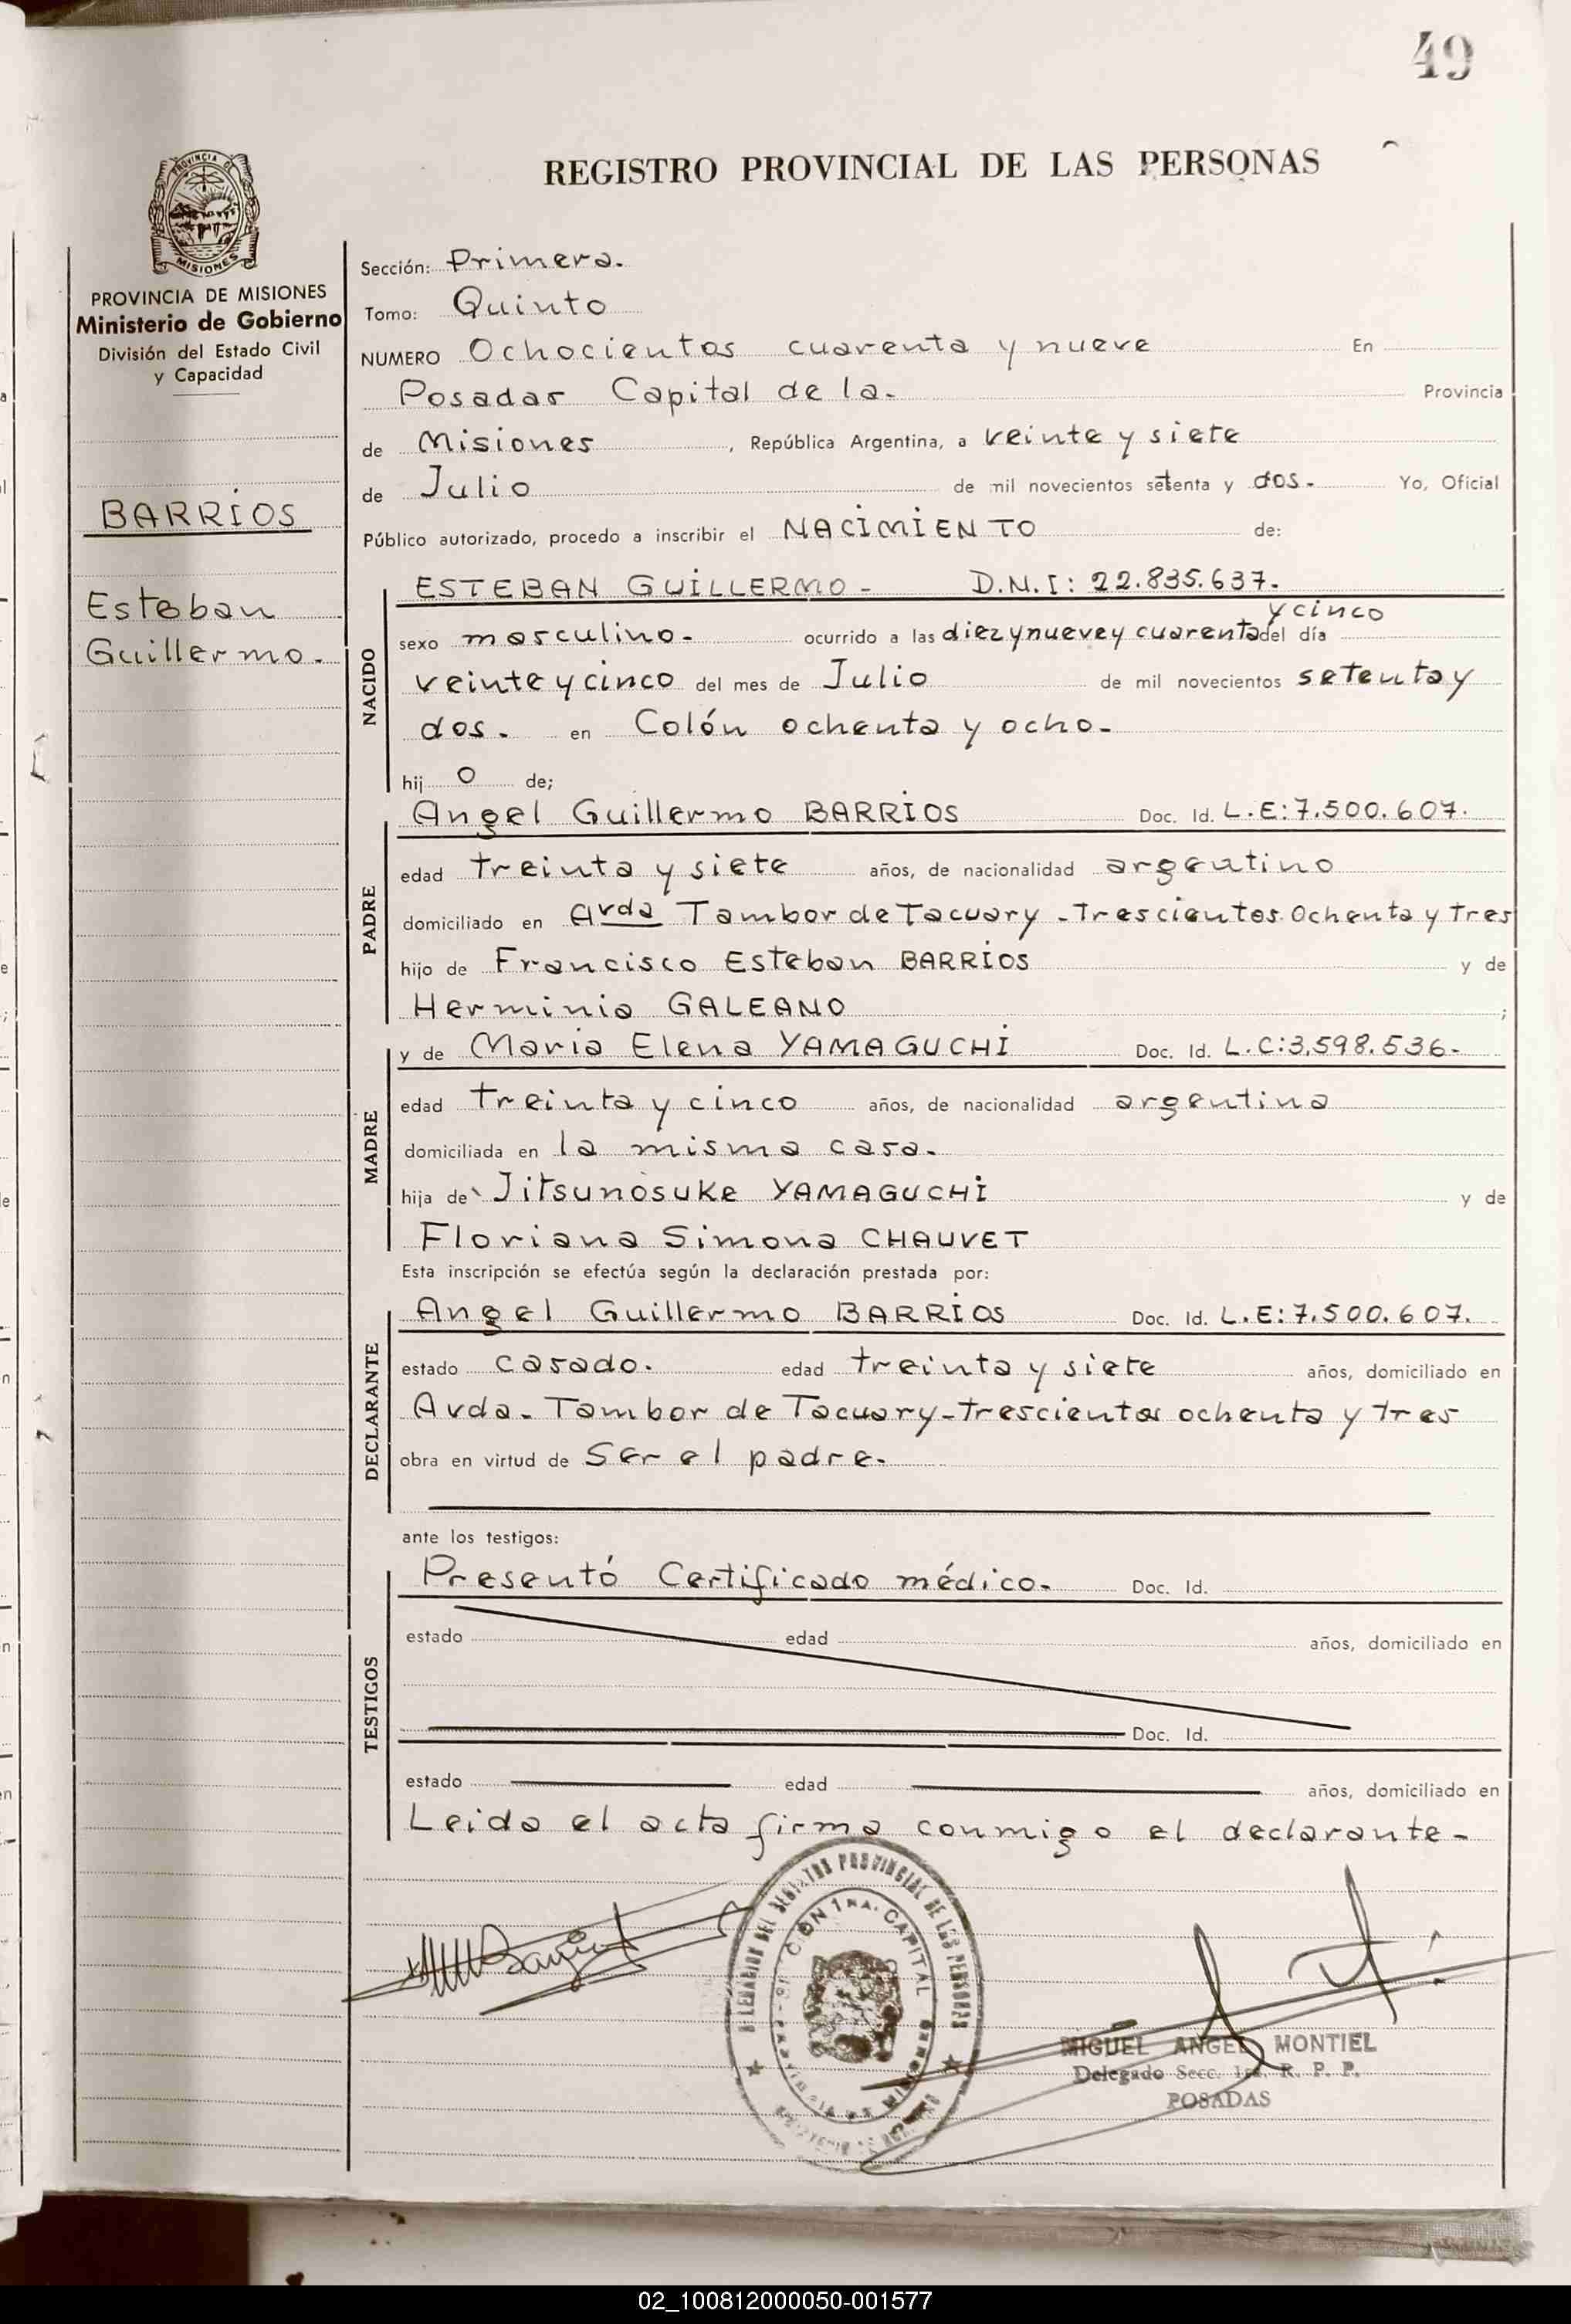 49
REGISTRO PROVINCIAL DE LAS PERSONAS
PROVINCIA DE
MISIONES
PROVINCIA DE MISIONES
Ministerio de Gobierno
División del Estado Civil
y Capacidad
BARRIOS
Esteban
Guillermo.
Sección: Primera.
Tomo: Quinto
NUMERO Ochocientos cuarenta y nueve En
Posadas Capital de la. Provincia
de Misiones, República Argentina, a veinte y siete
de Julio de mil novecientos setenta y dos. Yo, Oficial
Público autorizado, procedo a inscribir el NACIMIENTO de:
NACIDO
ESTEBAN GUILLERMO - D.N.I: 22.835.637.
y cinco
sexo masculino. ocurrido a las diez y nueve y cuarenta del día
veinte y cinco del mes de Julio de mil novecientos setenta y
dos. en Colón ochenta y ocho.
hij o de;
PADRE
Angel Guillermo BARRIOS Doc. Id. L.E:7.500.607.
edad treinta y siete años, de nacionalidad argentino
domiciliado en Avda Tambor de Tacuary - Trescientos Ochenta y Tres
hijo de Francisco Esteban BARRIOS y de
Herminia GALEANO ;
MADRE
y de Maria Elena YAMAGUCHI Doc. Id. L.C:3.598.536-
edad treinta y cinco años, de nacionalidad argentina
domiciliada en la misma casa.
hija de Jitsunosuke YAMAGUCHI y de
Floriana Simona CHAUVET
Esta inscripción se efectúa según la declaración prestada por:
DECLARANTE
Angel Guillermo BARRIOS Doc. Id. L.E:7.500.607.
estado casado. edad treinta y siete años, domiciliado en
Avda. Tambor de Tacuary-trescientos ochenta y tres
obra en virtud de Ser el padre.
ante los testigos:
TESTIGOS
Presentó Certificado médico. Doc. Id.
estado edad años, domiciliado en
Doc. Id.
estado edad años, domiciliado en
Leida el acta firma conmigo el declarante-
DEL REGISTRO PROVINCIAL DE LAS PERSONAS
1RA. CAPITAL
MIGUEL ANGEL MONTIEL
Delegado Secc. 1ra. R. P. P.
POSADAS
02_100812000050-001577